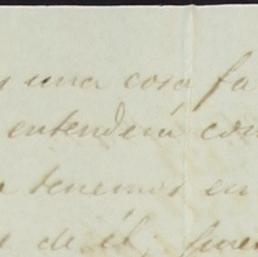 una cosa fa
entenderá con
tenemos en
de él,